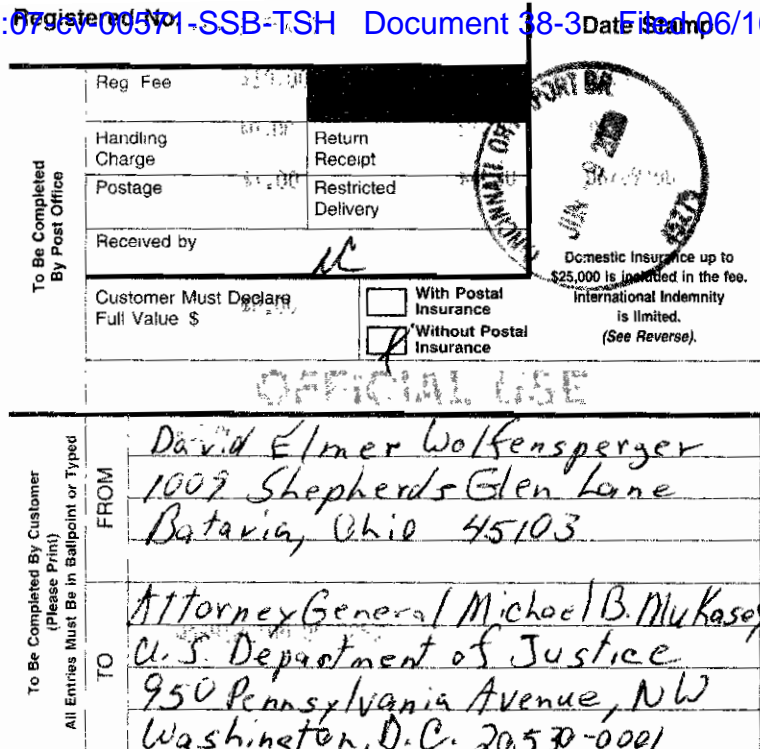 :07-cv-00571-SSB-TSH Document 38-3 Filed 06/10
Registered No.
Date Stamp
To Be Completed
By Post Office
Reg Fee
Handling
Charge
Return
Receipt
Postage
Restricted
Delivery
Received by
Customer Must Declare
Full Value $
With Postal
Insurance
Without Postal
Insurance
Domestic Insurance up to
$25,000 is included in the fee.
International Indemnity
is limited.
(See Reverse).
OFFICIAL USE
To Be Completed By Customer
(Please Print)
All Entries Must Be in Ballpoint or Typed
FROM
David Elmer Wolfensperger
1009 Shepherds Glen Lane
Batavia, Ohio 45103
TO
Attorney General Michael B. Mukasey
U.S. Department of Justice
950 Pennsylvania Avenue, NW
Washington, D.C. 20530-0001